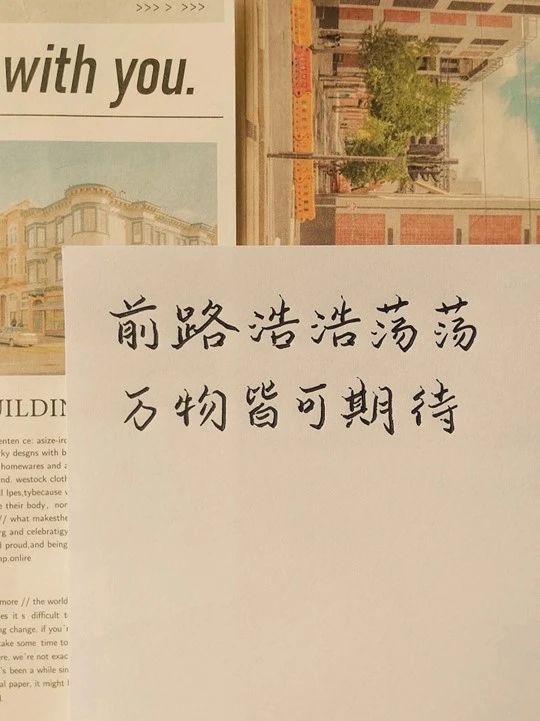 >>>> > >>>
with you.
前路浩浩荡荡
万物皆可期待
enten ce: asize-iro
rky desgns with b
homewares and a
nd. westock cloth
l lpes,tybecause
e their body, nor
// what makesthe
rg and celebratigy
proud,and being
np.onlire
more // the world
es it s difficult t
ng change. if you'r
take some time to
re. we're not exac
's been a while sin
al paper, it might